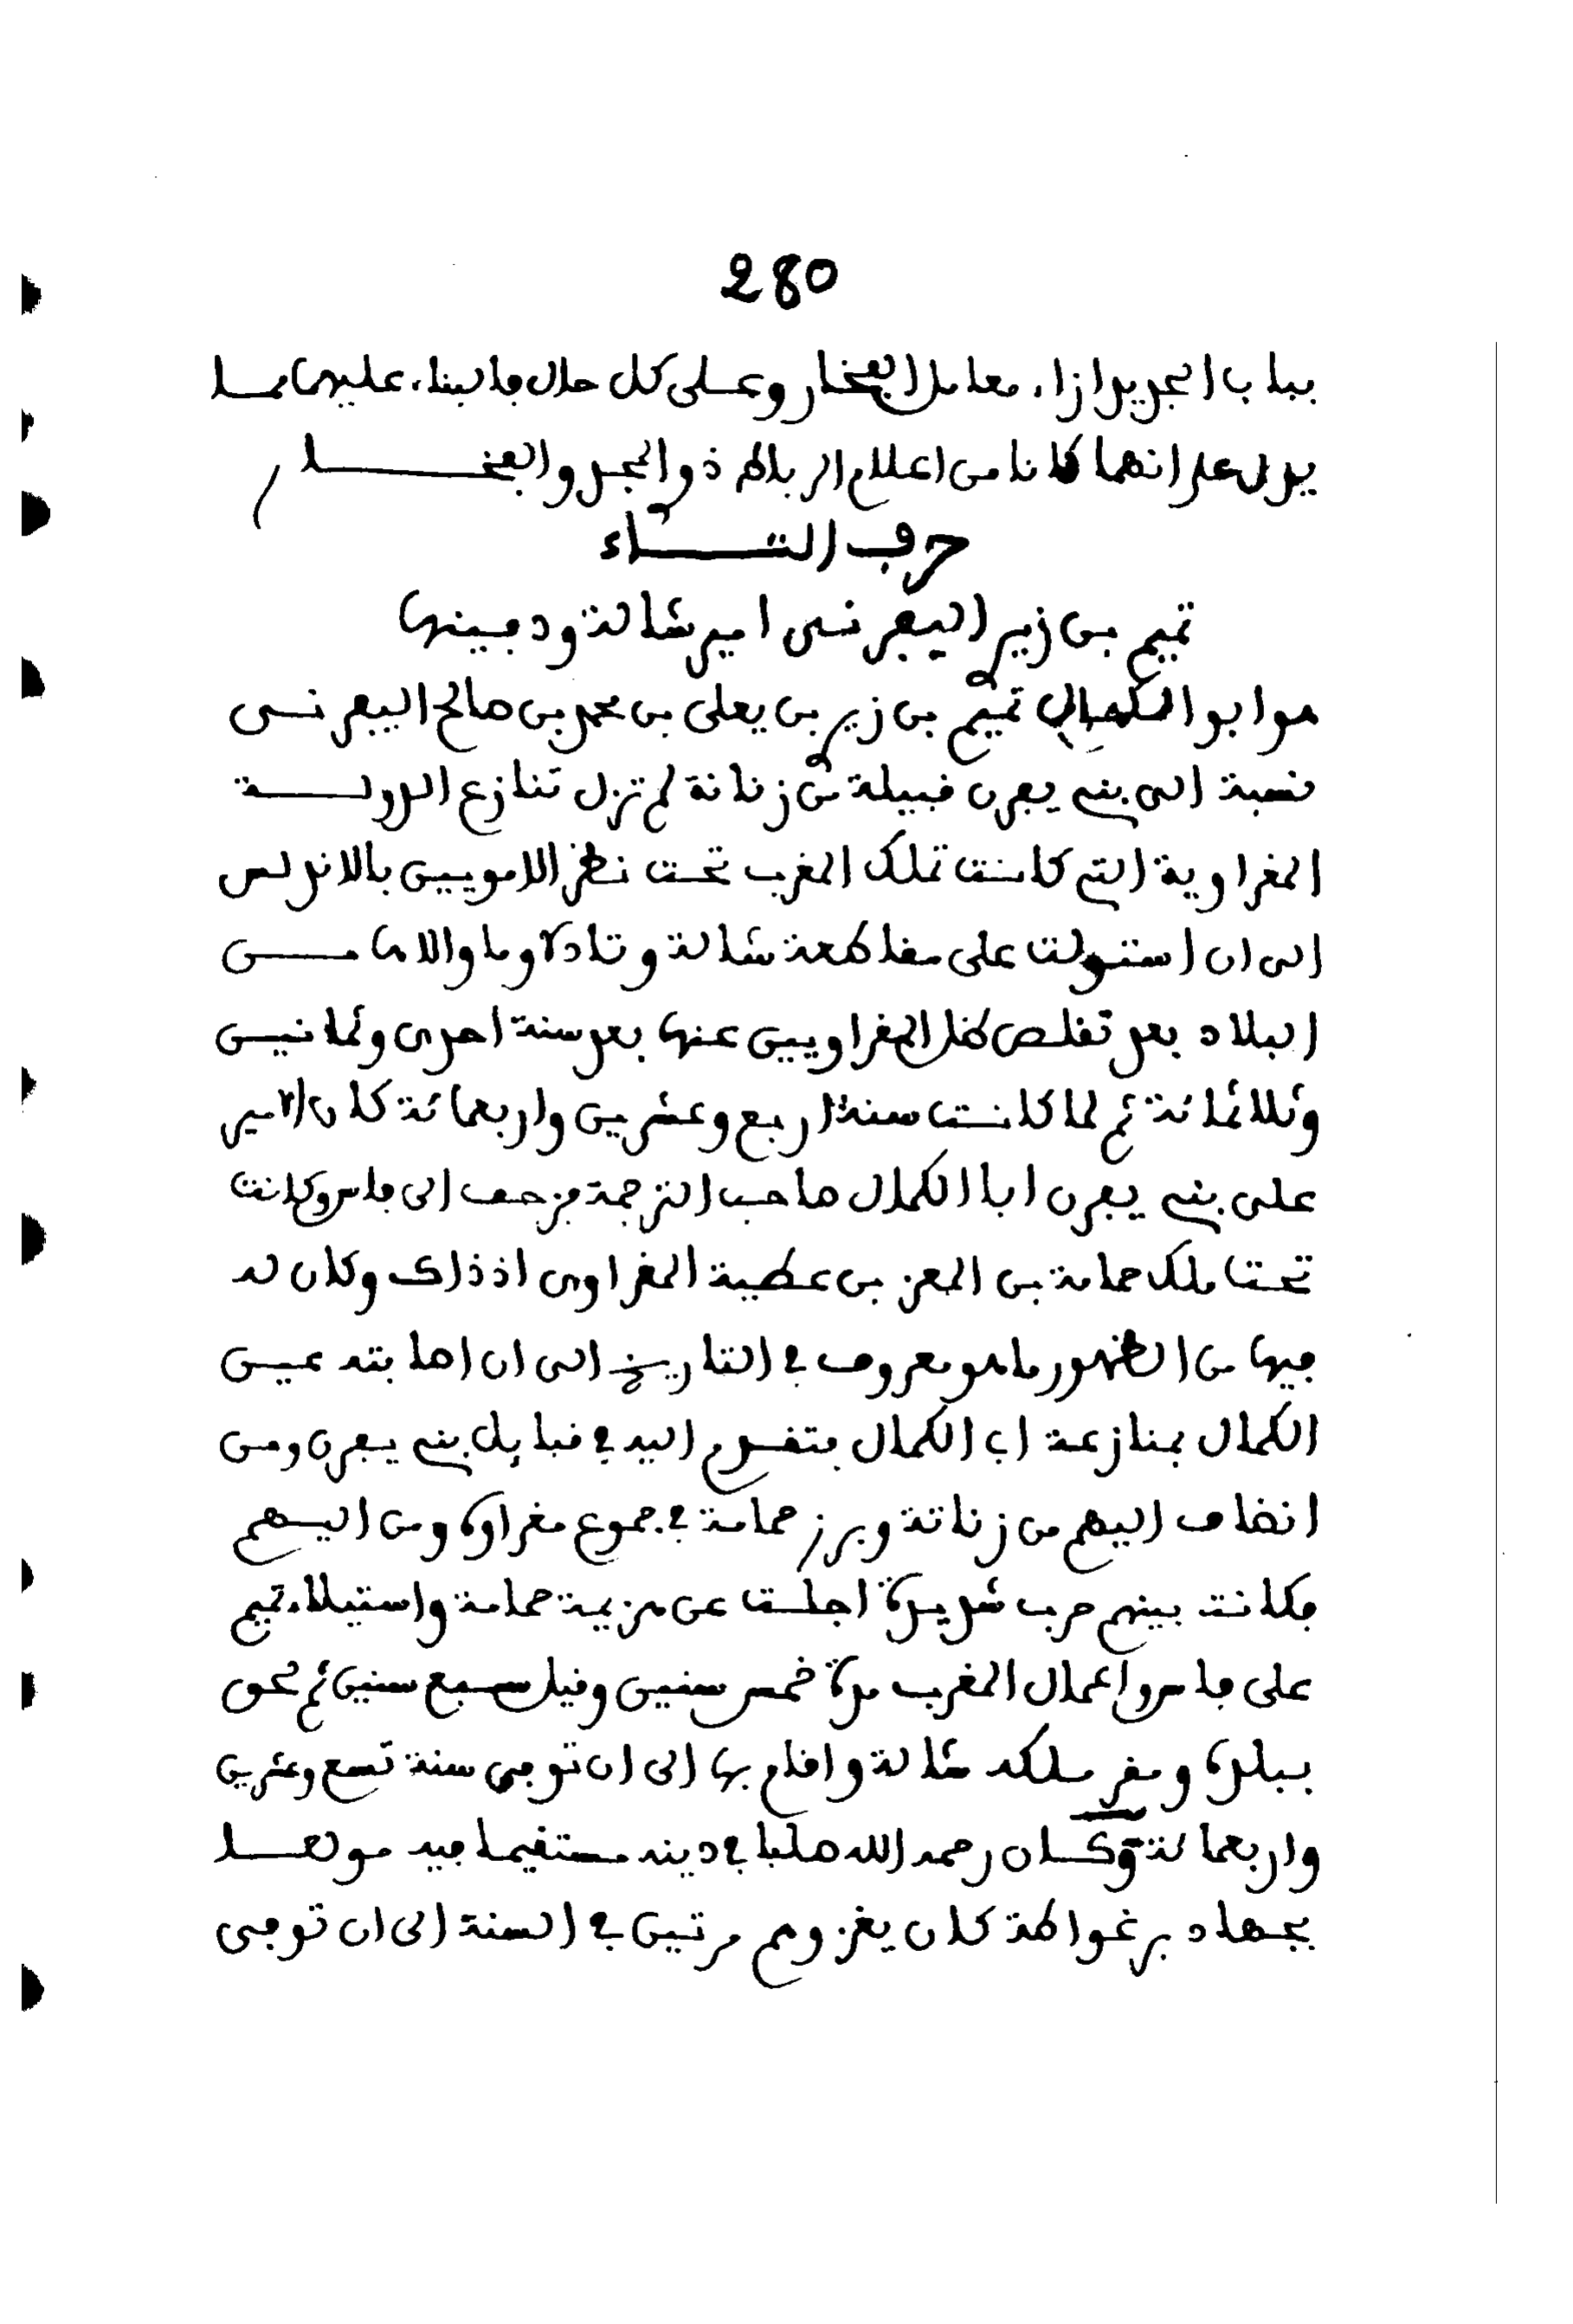 280
بباب الجديد ازاء معامل الفخار وعلى كل حال فالبناء عليهما مما
يدل على انهما كانا من اعلام الرباط ذوا المجد والفخـــــار
حرف التـــاء
تميم بن زيري اليفرنى امير شالة ودفينها
هو ابو الكمال تميم بن زيري بن يعلى بن محمد بن صالح اليفرنى
نسبة الى بني يفرن قبيلة من زناتة لم تزل تنازع الدولـــة
المغراوية التي كانت تملك المغرب تحت نظر الامويين بالاندلس
الى ان استولت على مقاطعة شالة وتادلا وما والاها مـــن
البلاد بعد تقلص ظل المغراويين عنها بعد سنة احدى وثمانيـن
وثلاثمائة ثم لما كانت سنة اربع وعشرين واربعمائة كان الامير
على بني يفرن ابا الكمال صاحب الترجمة فزحف الى فاس وكانت
تحت ملك حمامة بن المعز بن عطية المغراوى اذذاك وكان له
فيها من الظهور ما هو معروف في التاريخ الى ان اصابته عيـن
الكمال بمنازعة ابي الكمال بتقدم اليه في قبايل بني يفرن ومن
انضاف اليهم من زناتة وبرز حمامة في جموع مغراوة ومن اليـهم
فكانت بينهم حرب شديدة اجلت عن هزيمة حمامة واستيلاء تميم
على فاس واعمال المغرب مدة خمس سنين وقيل سبع سنين ثم لحق
ببلده ومقر ملكه شالة واقام بها الى ان توفى سنة تسع وعشرين
واربعمائة وكـان رحمه الله صلبا في دينه مستقيما فيه مولعـا
بجهاد برغواطة كان يغزوهم مرتين في السنة الى ان توفى